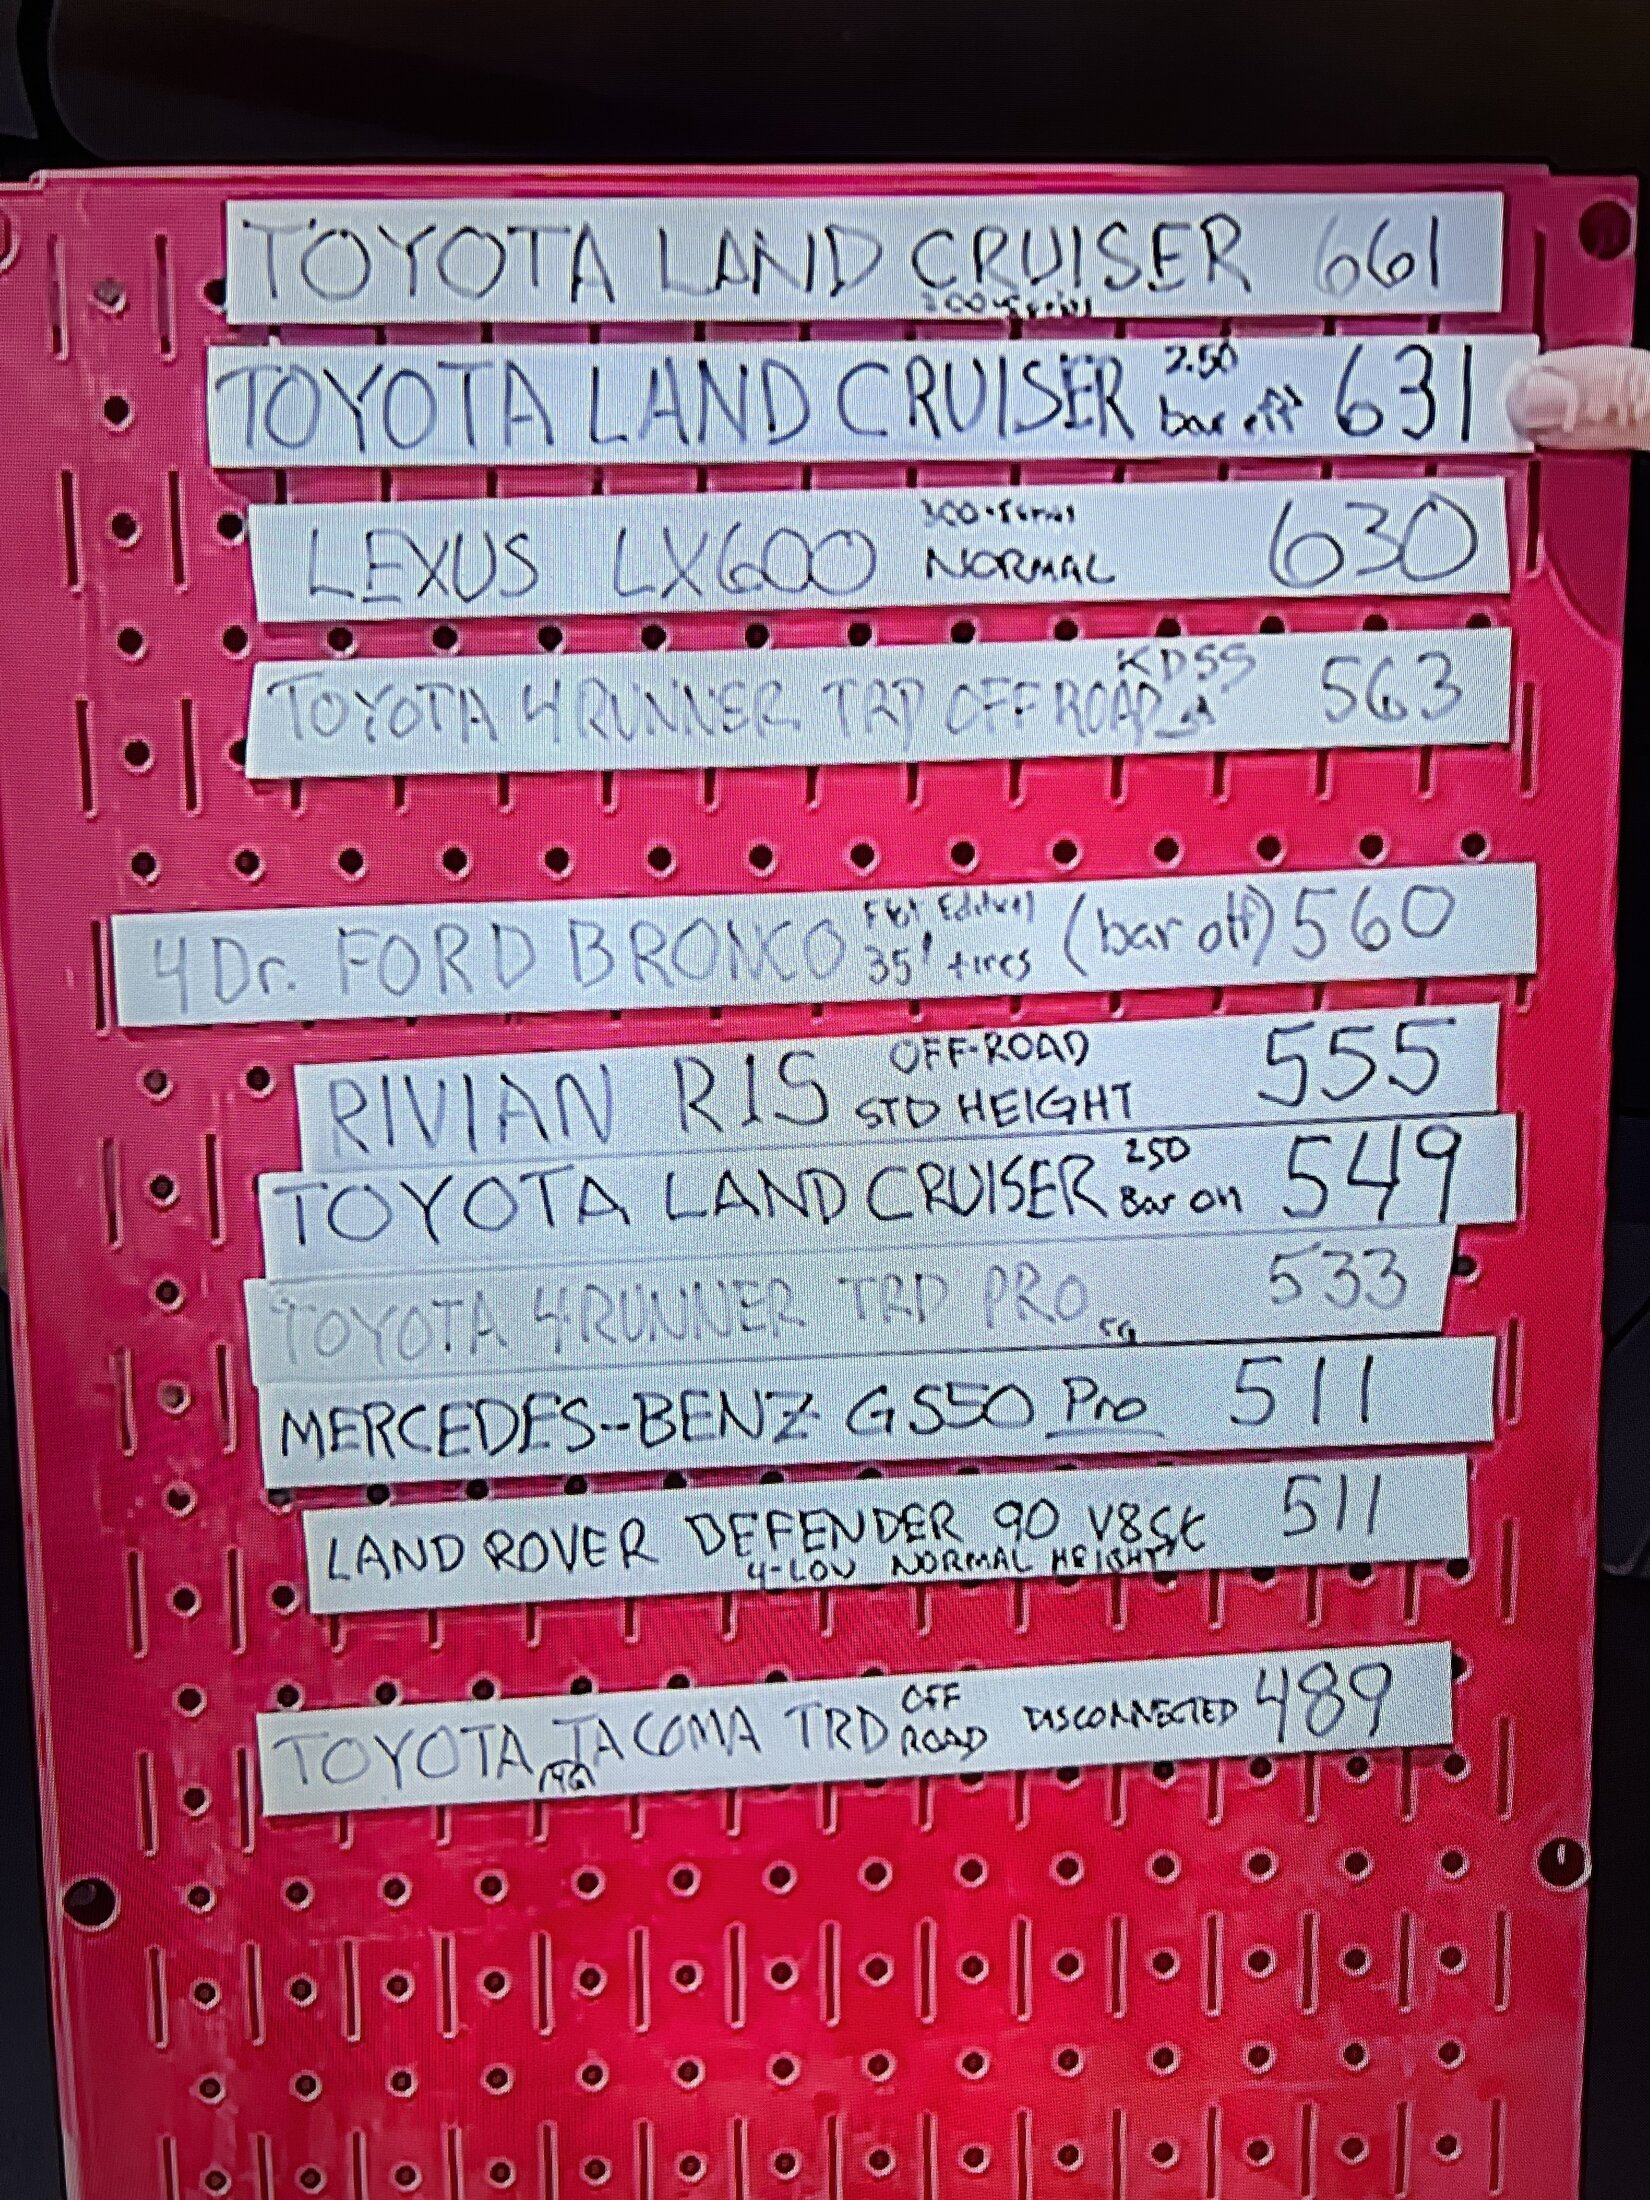 TOYOTA LAND CRUISER 661
200-Series
TOYOTA LAND CRUISER 2.50 bar off 631
LEXUS LX600 300-Series NORMAL 630
TOYOTA 4RUNNER TRD OFF ROAD KDSS 563
4Dr. FORD BRONCO 35" tires (bar off) 560
RIVIAN R1S OFF-ROAD STD HEIGHT 555
TOYOTA LAND CRUISER 250 Bar on 549
TOYOTA 4RUNNER TRD PRO 5G 533
MERCEDES-BENZ G550 Pro 511
LAND ROVER DEFENDER 90 V8 511
4-LOW NORMAL HEIGHT
TOYOTA TACOMA TRD OFF ROAD DISCONNECTED 489
(4G)